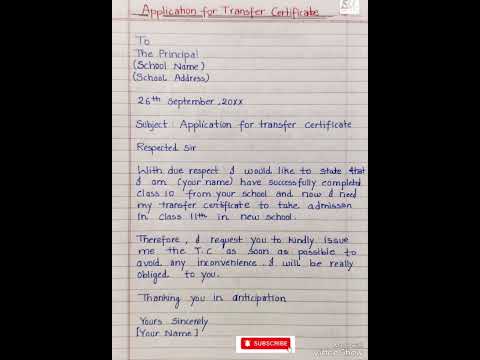 Application for Transfer Certificate
To
The Principal
(School Name)
(School Address)
26th September, 20XX
Subject : Application for transfer certificate
Respected Sir
With due respect I would like to state that
I am (your name) have successfully completed
class 10 from your school and now I need
my transfer certificate to take admission
in class 11th in new school.
Therefore, I request you to kindly issue
me the T.C as soon as possible to
avoid any inconvenience. I will be really
obliged to you.
Thanking you in anticipation
Yours Sincerely
[Your Name]
SUBSCRIBE